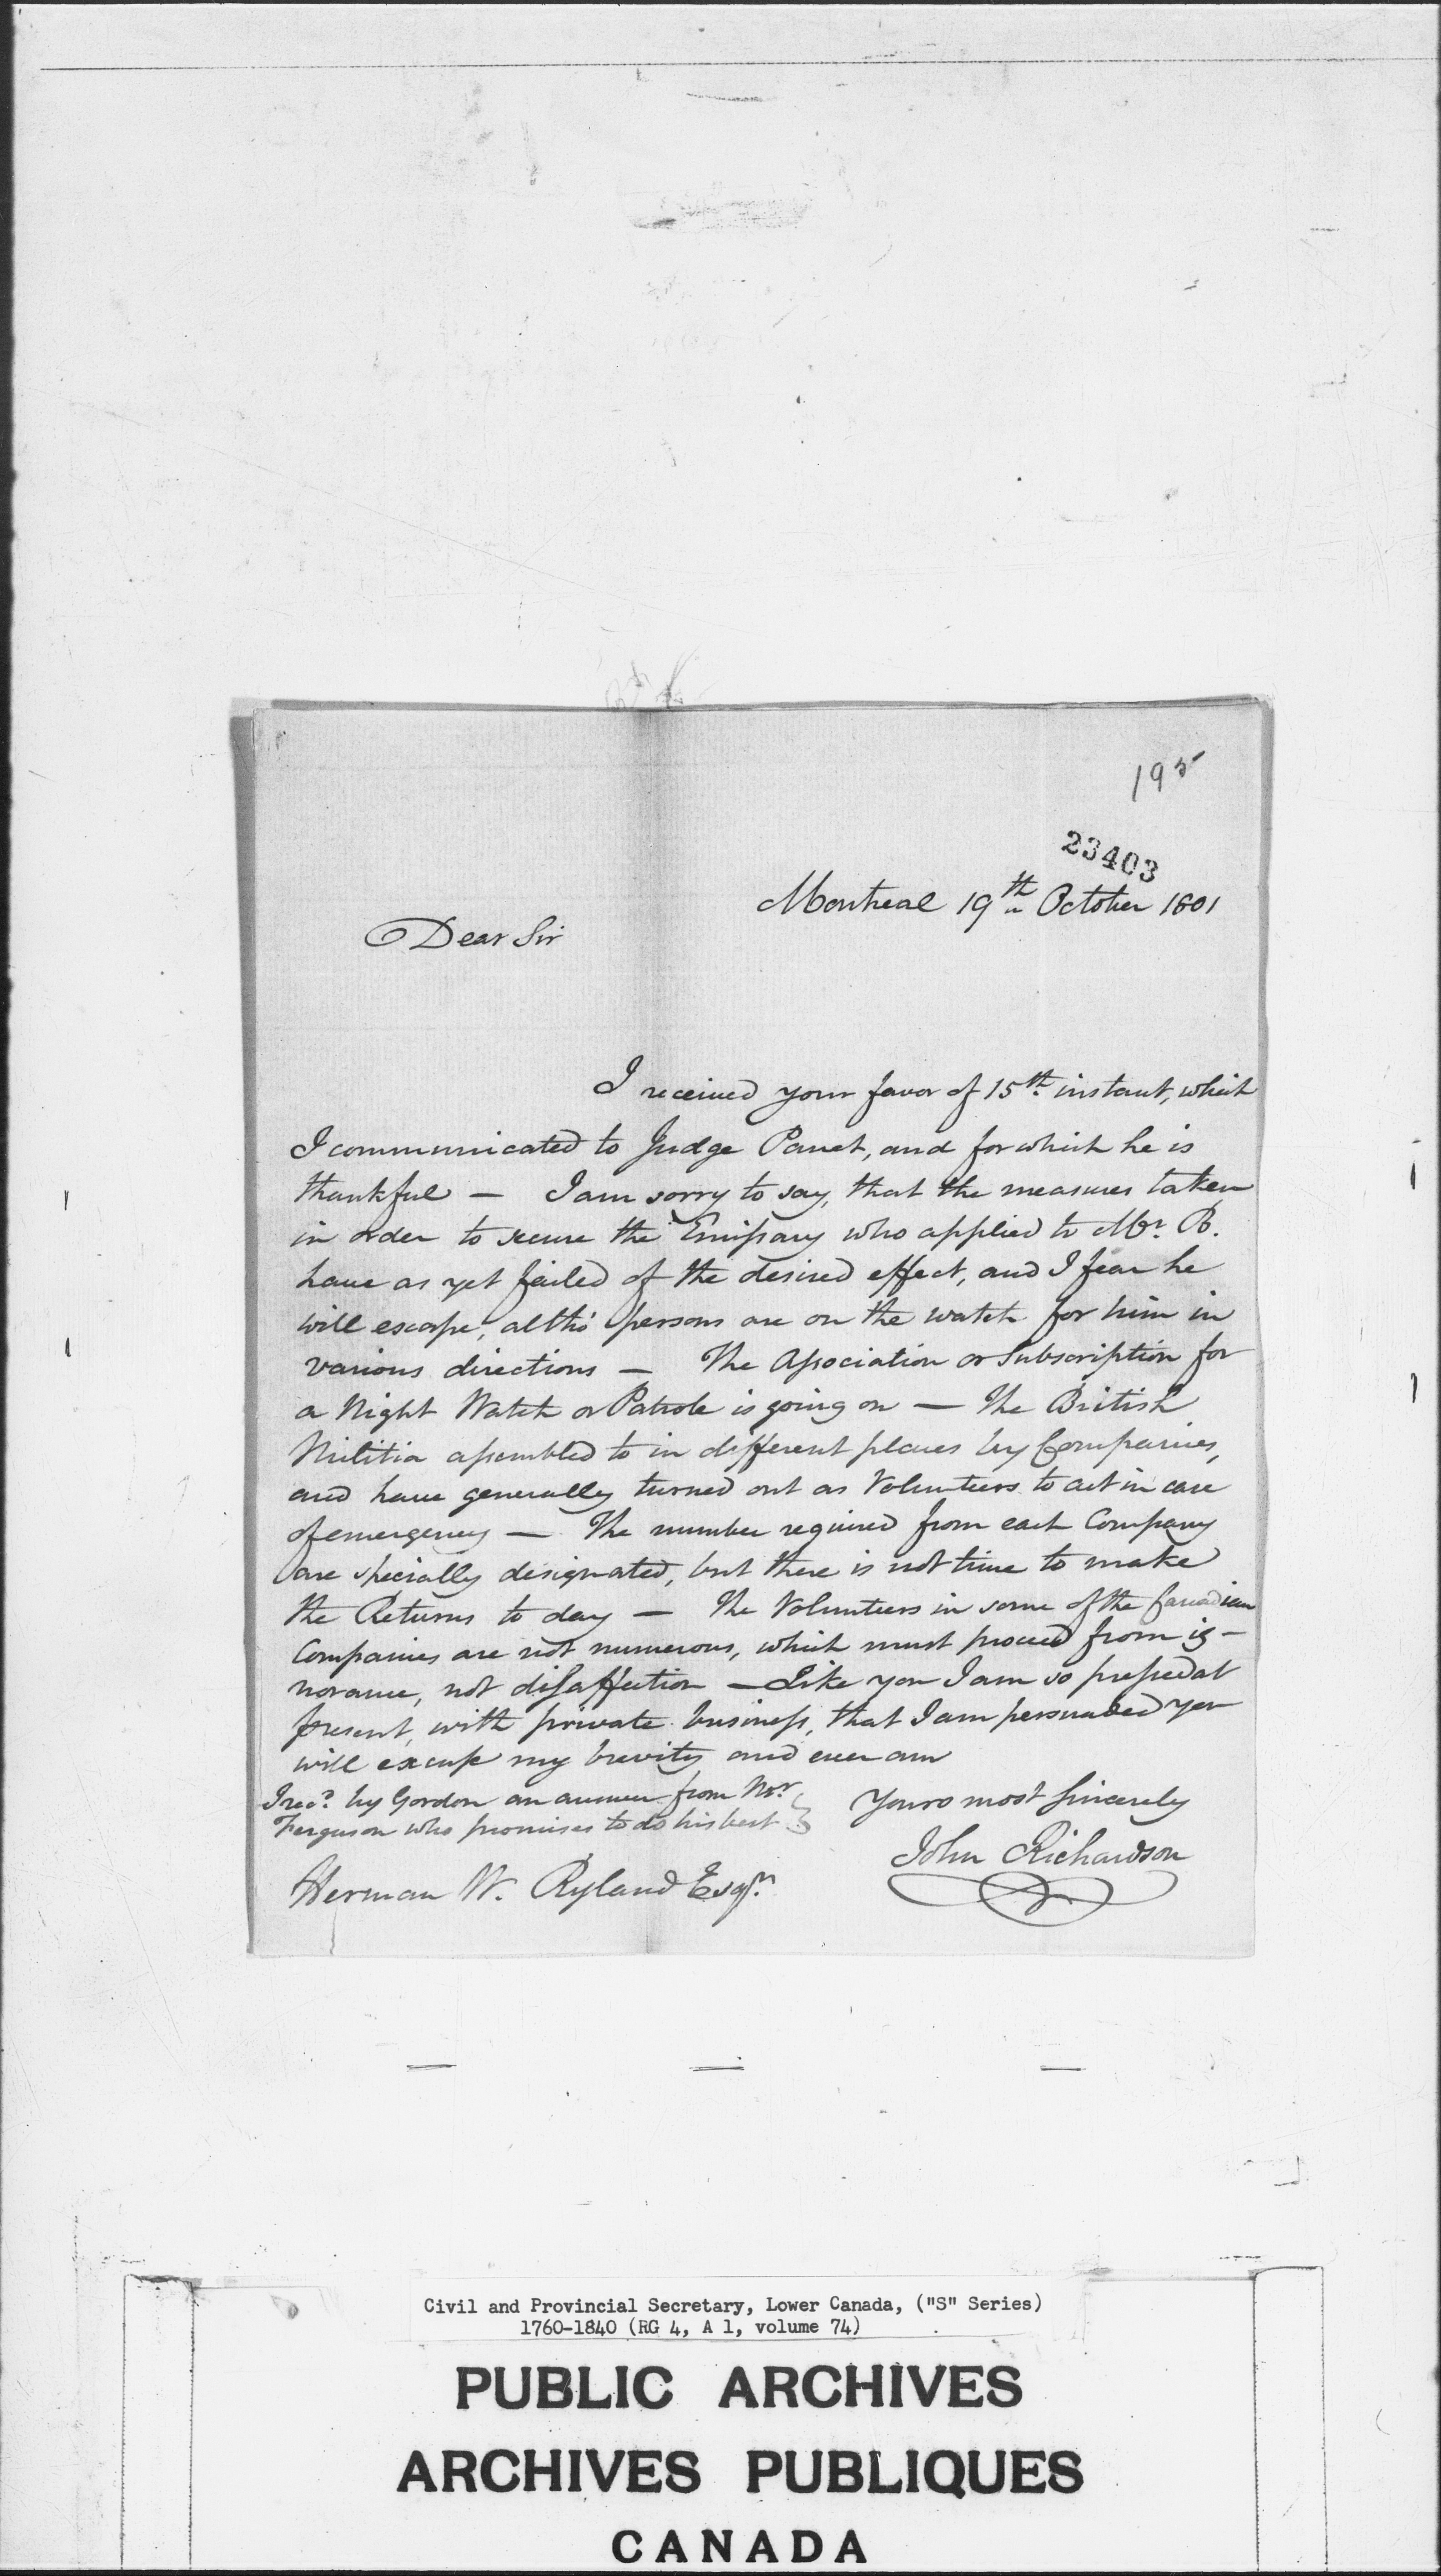 195
23403
Montreal 19th October 1801
Dear Sir
I received your favor of 15th instant, which
I communicated to Judge Panet, and for which he is
thankful — I am sorry to say, that the measures taken
in order to secure the Emissary who applied to Mr. B.
have as yet failed of the desired effect, and I fear he
will escape, altho' persons are on the watch for him in
various directions — The Association or Subscription for
a Night Watch or Patrole is going on — The British
Militia assembled to in different places by Companies,
and have generally turned out as Volunteers to act in case
of emergency — The number required from each Company
are specially designated, but there is not time to make
the Returns to day — The Volunteers in some of the Canadian
Companies are not numerous, which must proceed from ig-
norance, not disaffection — Like you I am so pressed at
present, with private business, that I am persuaded you
will excuse my brevity and ever am
I recd. by Gordon an answer from Mr.
Ferguson who promises to do his best
Yours most sincerely
John Richardson
Herman W. Ryland Esqr.
Civil and Provincial Secretary, Lower Canada, ("S" Series)
1760-1840 (RG 4, A 1, volume 74)
PUBLIC ARCHIVES
ARCHIVES PUBLIQUES
CANADA